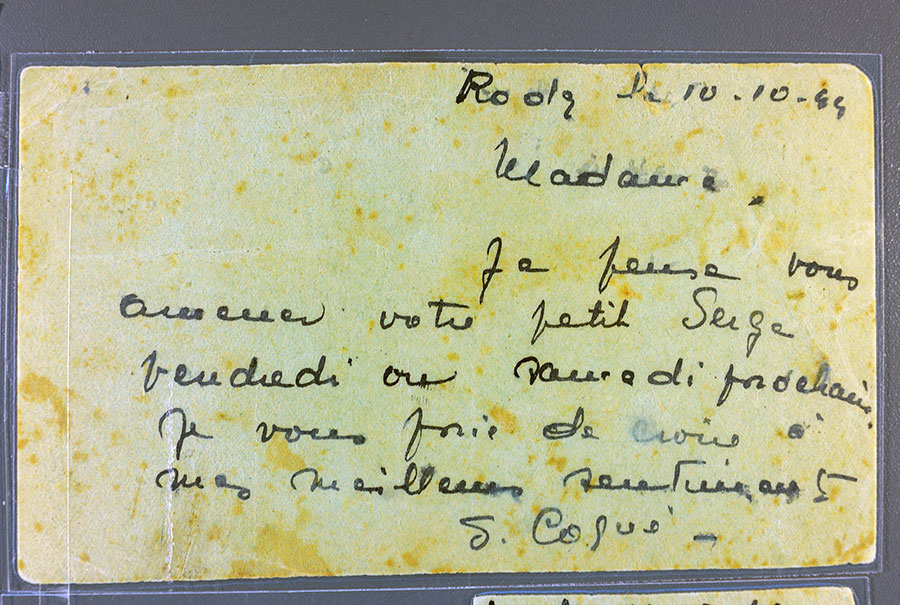 Rodz le 10-10-44
Madame,
Je pense vous
amener votre petit Serge
vendredi ou samedi prochain.
Je vous prie de croire à
mes meilleurs sentiments
S. Cogué -